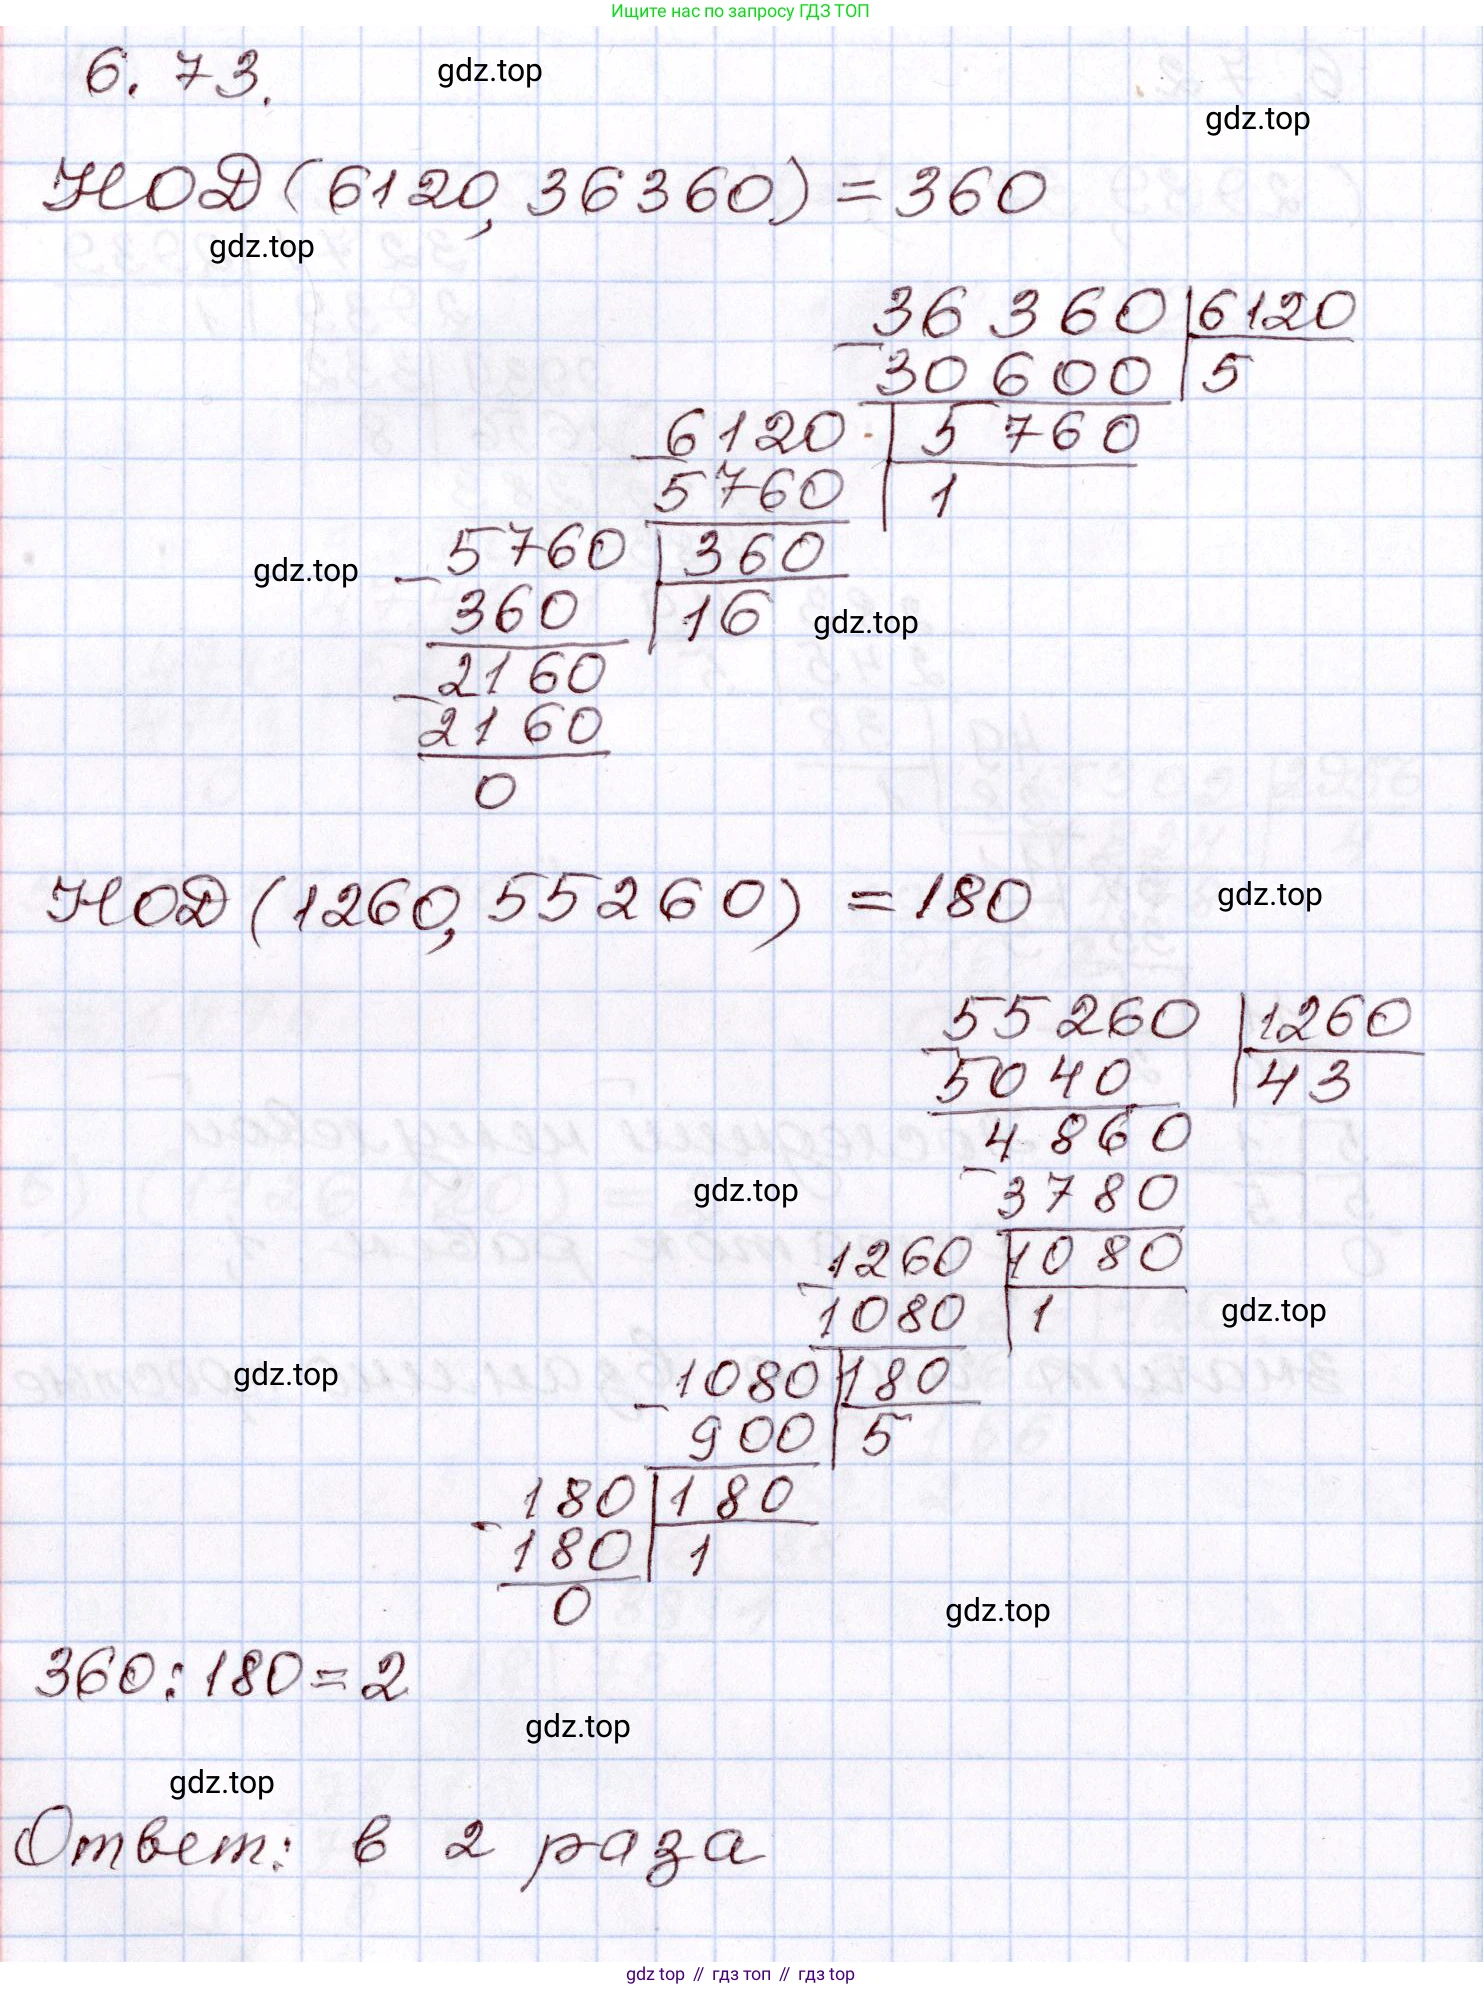 Ищите нас по запросу ГДЗ ТОП
6.73.
gdz.top
gdz.top
НОД(6120, 36360) = 360
gdz.top
36360 | 6120
- 30600 | 5
6120 | 5760
- 5760 | 1
5760 | 360
gdz.top
- 360 | 16
gdz.top
2160
- 2160
0
НОД(1260, 55260) = 180
gdz.top
55260 | 1260
- 5040 | 43
4860
- 3780
gdz.top
1260 | 1080
- 1080 | 1
gdz.top
1080 | 180
gdz.top
- 900 | 5
180 | 180
- 180 | 1
0
gdz.top
360:180=2
gdz.top
gdz.top
Ответ: в 2 раза
gdz top // гдз топ // gdz top